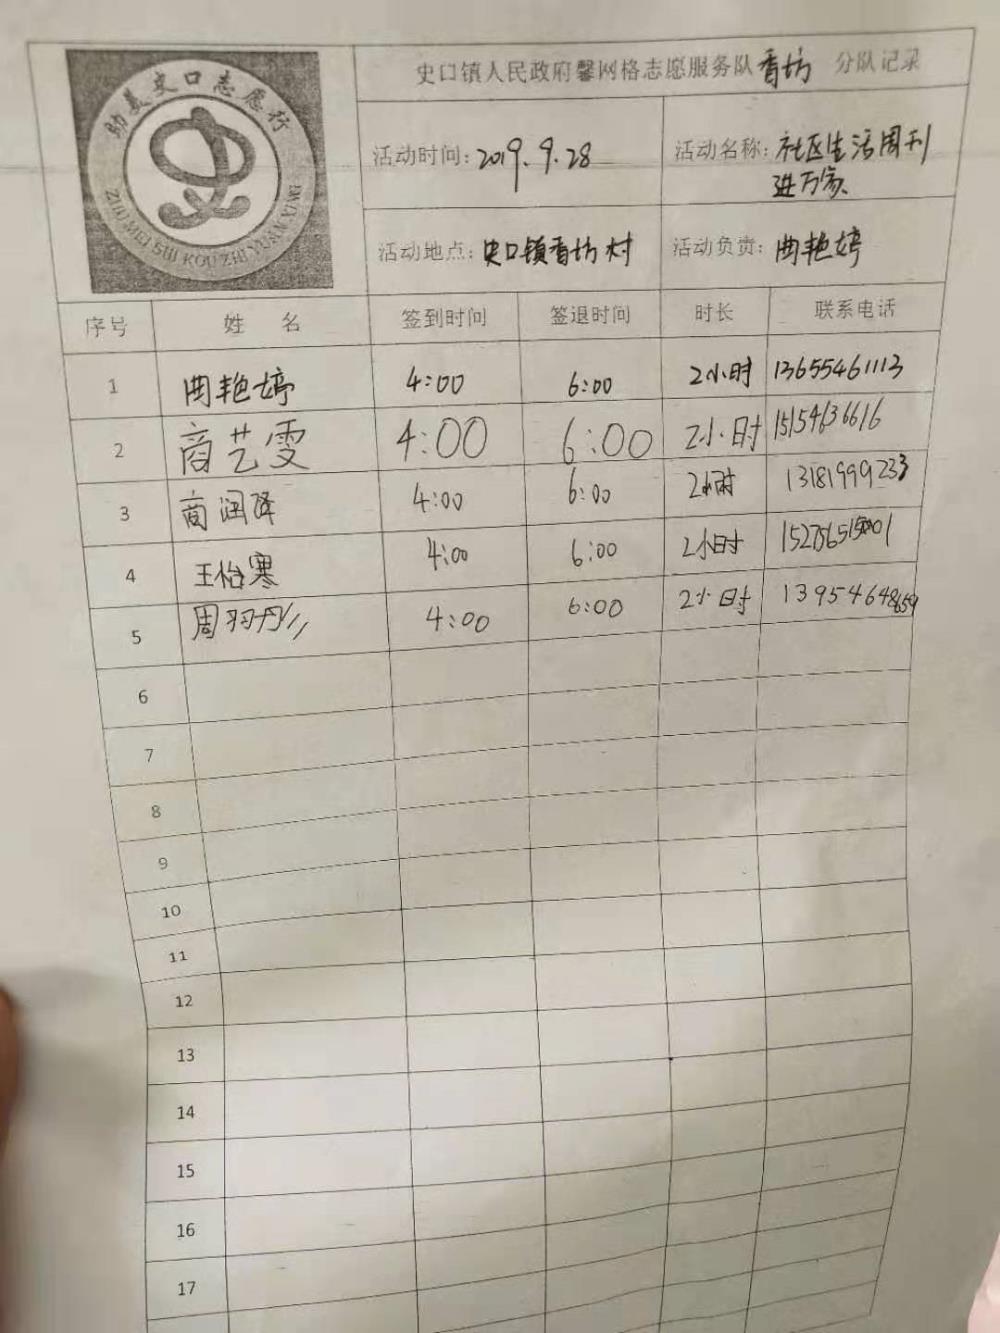 助美史口志愿行
ZHU MEI SHI KOU ZHI YUAN XING
史口镇人民政府馨网格志愿服务队香坊 分队记录
活动时间:2019.9.28
活动名称:社区生活周刊
进万家
活动地点:史口镇香坊村
活动负责:曲艳婷
序号 姓 名 签到时间 签退时间 时长 联系电话
1 曲艳婷 4:00 6:00 2小时 13655461113
2 商艺雯 4:00 6:00 2小时 15154636616
3 商润泽 4:00 6:00 2小时 13181999233
4 王怡寒 4:00 6:00 2小时
5 周羽彤 4:00 6:00 2小时 13954648659
6
7
8
9
10
11
12
13
14
15
16
17